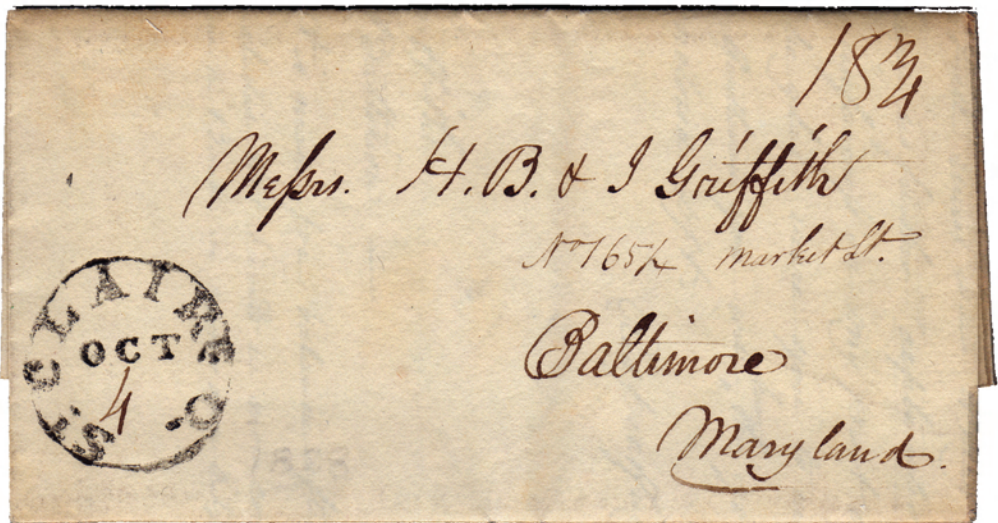 18 3/4
Messrs. H. B. & I Griffith
No 165 1/2 Market St.
Baltimore
Maryland.
ST. CLAIRS O.
OCT
4